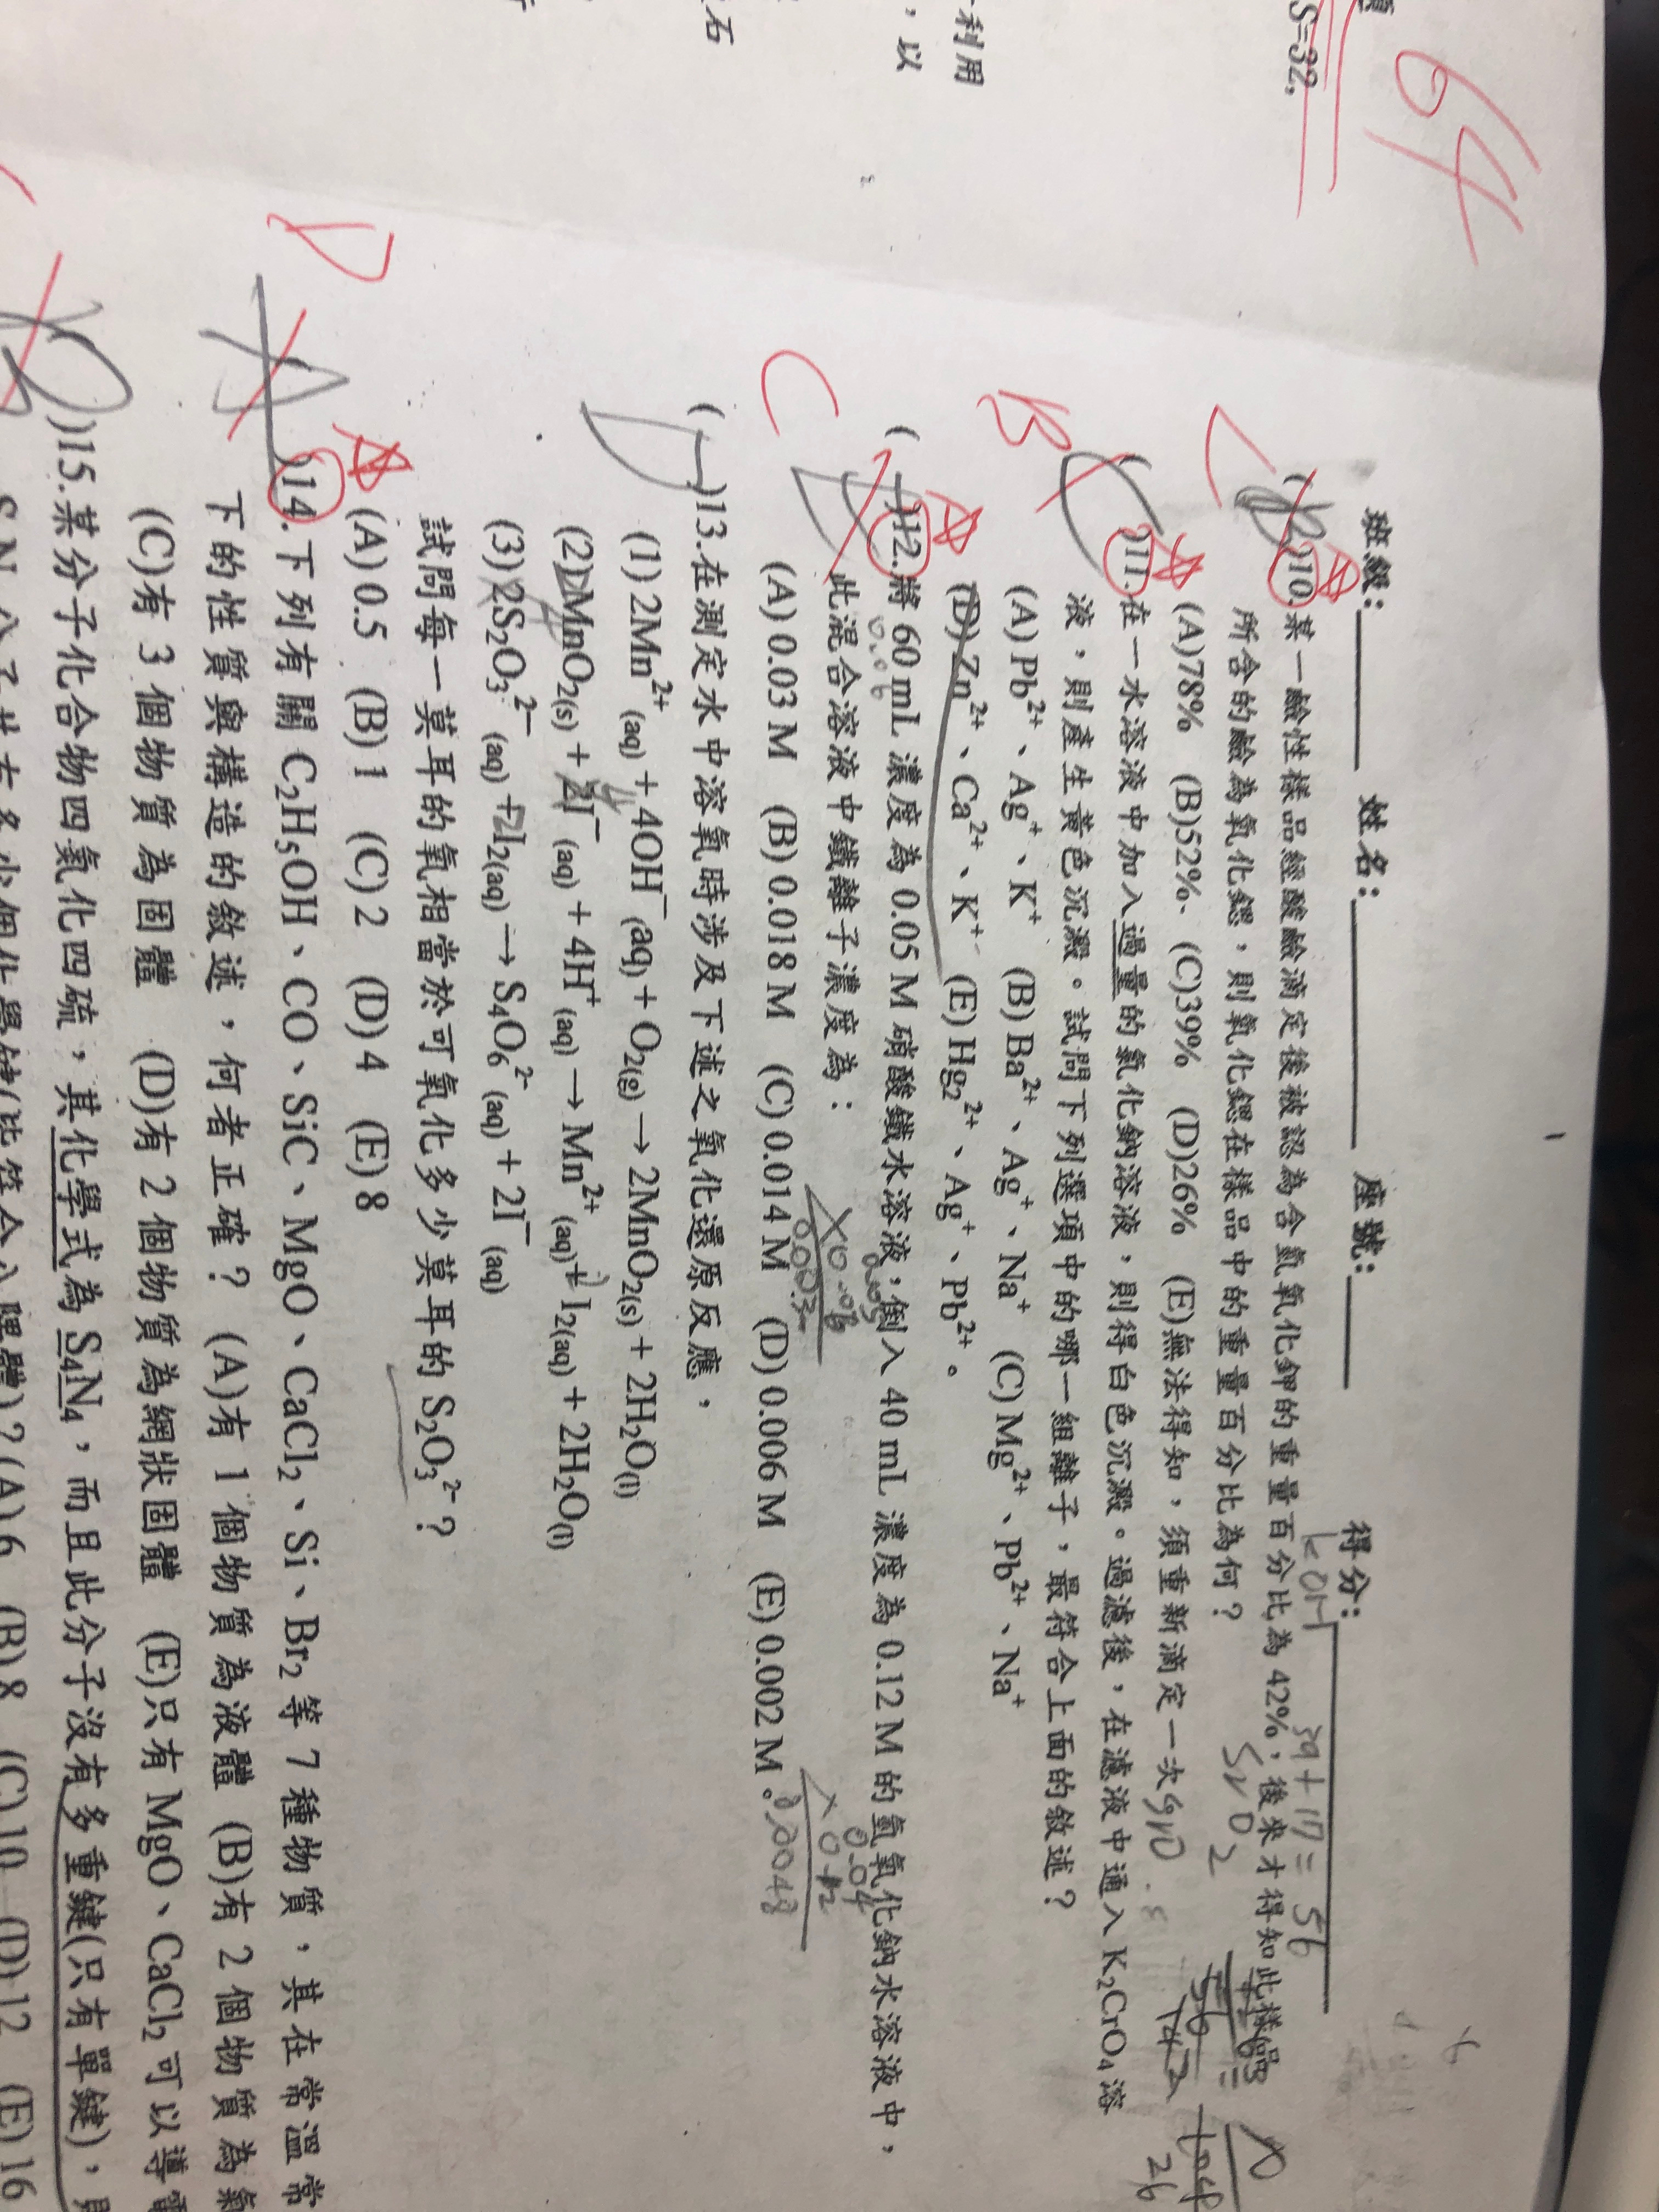 64
S=32,
利用
，以
石
班級：　姓名：　座號：　得分：
KOH 39+17=56
( )10.某一鹼性樣品經酸鹼滴定後被認為含氫氧化鉀的重量百分比為 42%，後來才得知此樣品
所含的鹼為氧化鍶，則氧化鍶在樣品中的重量百分比為何？
(A)78% (B)52% (C)39% (D)26% (E)無法得知，須重新滴定一次
B
( C )11.在一水溶液中加入過量的氯化鈉溶液，則得白色沉澱。過濾後，在濾液中通入 K₂CrO₄ 溶
液，則產生黃色沉澱。試問下列選項中的哪一組離子，最符合上面的敘述？
(A) Pb²⁺、Ag⁺、K⁺ (B) Ba²⁺、Ag⁺、Na⁺ (C) Mg²⁺、Pb²⁺、Na⁺
(D) Zn²⁺、Ca²⁺、K⁺ (E) Hg₂²⁺、Ag⁺、Pb²⁺。
C
( )12.將 60 mL 濃度為 0.05 M 硝酸鐵水溶液，倒入 40 mL 濃度為 0.12 M 的氫氧化鈉水溶液中，
此混合溶液中鐵離子濃度為：
(A) 0.03 M (B) 0.018 M (C) 0.014 M (D) 0.006 M (E) 0.002 M。
( D )13.在測定水中溶氧時涉及下述之氧化還原反應，
(1) 2Mn²⁺(aq) + 4OH⁻(aq) + O₂(g) → 2MnO₂(s) + 2H₂O(l)
(2) MnO₂(s) + 2I⁻(aq) + 4H⁺(aq) → Mn²⁺(aq) + I₂(aq) + 2H₂O(l)
(3) 2S₂O₃²⁻(aq) + I₂(aq) → S₄O₆²⁻(aq) + 2I⁻(aq)
試問每一莫耳的氧相當於可氧化多少莫耳的 S₂O₃²⁻？
(A) 0.5 (B) 1 (C) 2 (D) 4 (E) 8
D
( A )14.下列有關 C₂H₅OH、CO、SiC、MgO、CaCl₂、Si、Br₂ 等 7 種物質，其在常溫常
下的性質與構造的敘述，何者正確？ (A)有 1 個物質為液體 (B)有 2 個物質為氣
(C)有 3 個物質為固體 (D)有 2 個物質為網狀固體 (E)只有 MgO、CaCl₂ 可以導電
)15.某分子化合物四氮化四硫，其化學式為 S₄N₄，而且此分子沒有多重鍵(只有單鍵)，
(A) 6 (B) 8 (C) 10 (D) 12 (E) 16